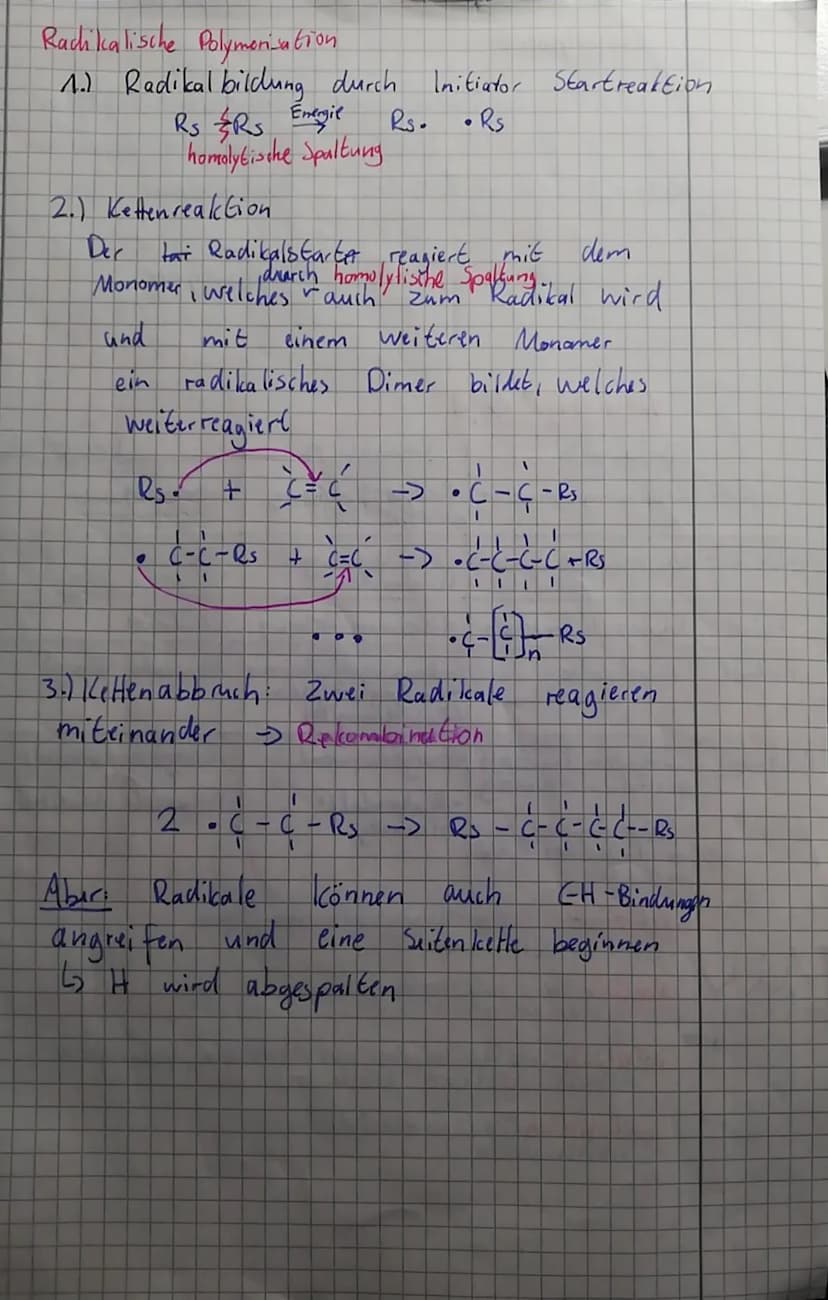 Radikalische Polymerisation
1.) Radikalbildung durch Initiator Startreaktion
Rs Rs Energie → Rs• •Rs
homolytische Spaltung
2.) Kettenreaktion
Der Radikalstarter reagiert mit dem
durch homolytische Spaltung
Monomer, welches auch zum Radikal wird
und mit einem weiteren Monomer
ein radikalisches Dimer bildet, welches
weiterreagiert
Rs• + C=C -> •C-C-Rs
• C-C-Rs + C=C -> •C-C-C-C-Rs
... •C-[C]n-Rs
3.) Kettenabbruch: Zwei Radikale reagieren
miteinander -> Rekombination
2 •C-C-Rs -> Rs-C-C-C-C-Rs
Aber: Radikale können auch C-H-Bindungen
angreifen und eine Seitenkette beginnen
↳ H wird abgespalten